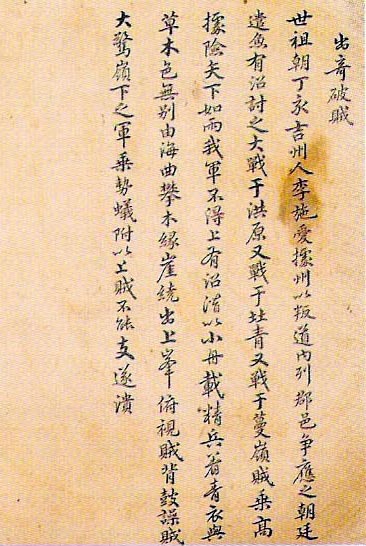 出奇破賊
世祖朝丁亥吉州人李施愛據州以叛道內列郡邑爭應之朝廷
遣魚有沼討之大戰于洪原又戰于北青又戰于蔓嶺賊乘高
據險矢下如雨我軍不得上有沼潛以小舟載精兵着青衣與
草木色無別由海曲攀木緣崖繞出上峯俯視賊背鼓譟賊
大驚嶺下之軍乘勢蟻附以上賊不能支遂潰